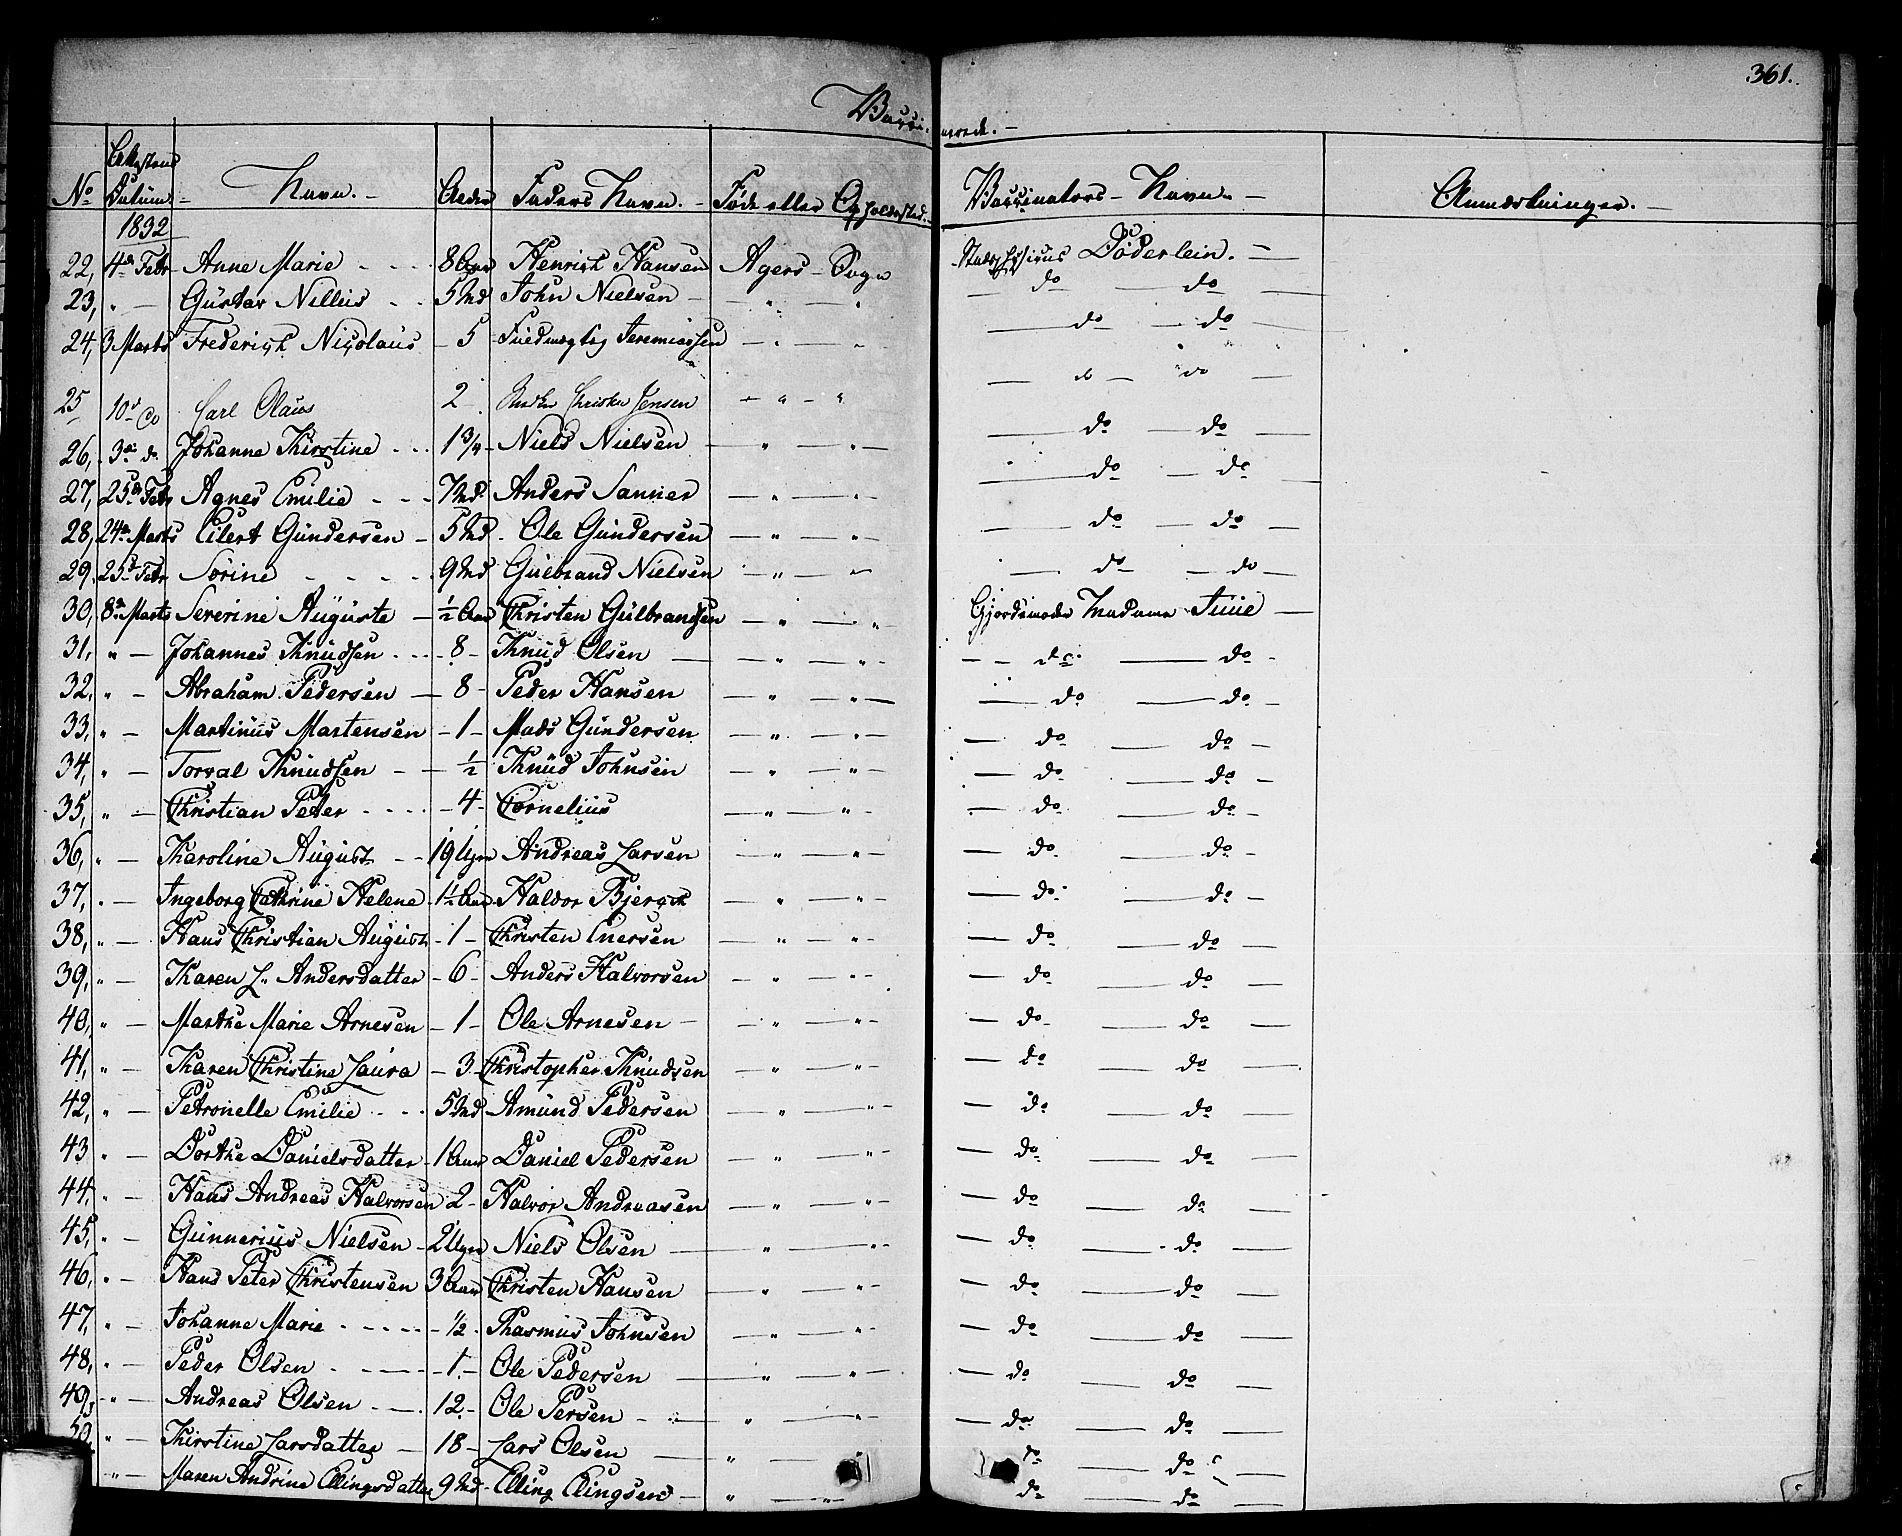 361.
Vacci- nerede. -
No Attestens Datum Navn. - Alder Faders Navn. - Føde eller Opholdssted. - Vaccinators Navn. - Anmærkninger. -
1832
22, 4de Febr Anne Marie - - - 8 Aar Henrich Hansen Agers - Sogn Stadsphysicus Döderlein. -
23, " - Gustav Nillius - - 5 Md John Nielsen - " " do do
24, 3 Marts Frederich Nicolaus - 5 Jeremiassen - " " do do
25 10d do Carl Olaus 2 Christian Jensen - " - " do do
26, 3de do. Johanne Kirstine - - - 1 3/4 - Niels Nielsen - " " - do do
27, 25de Febr Agnes Emilie - - - 7 Md. Anders Sanner - " - " - do do
28, 24de Marts Eilert Gundersen - 5 Md - Ole Gundersen - " - " - do do
29, 25de Febr Sørine - - - - 9 Md Gulbrand Nielsen - " - " do do
30, 8de Marts Severine Auguste - 1/2 Aar Christen Gulbrandsen - " - " Gjordemoder Madame Tuue -
31, " - Johannes Knudsen - - - 8 - Knud Olsen - " - " - do do
32, " - Abraham Pedersen - 8 - Peder Hansen - " - " - do do
33, " - Martinus Martensen - 1 - Mads Gundersen - " - " - do do
34, " - Torval Knudsen - - 1/2 Knud Johnsen - " - " - do do
35, " - Christian Peter - - - - 4 - Cornelius - " - " - do do
36, " - Karoline August - - 19 Ugr Andreas Larsen - " - " - do do
37, " - Ingeborg Cathrine Helene - 1 1/2 Aar Haldor Bjerch - " - " - do do
38, " - Hans Christian August - 1 - Christen Enersen - " - " - do do
39, " - Karen L. Andersdatter - 6 - Anders Halvorsen - " - " - do do
40, " - Marthe Marie Arnesen - 1 - Ole Arnesen - - " - " - do do
41, " - Karen Christine Laura - 3 - Christopher Knudsen - " - " - do do
42, " - Petronelle Emilie - - - 5 Md Amund Pedersen - " - " - do do
43 " - Dorthe Danielsdatter - 1 Aar Daniel Pedersen - " - " - do do
44, " - Hans Andreas Halvorsen 2 - Halvor Andreasen - " - " - do do
45, " - Gunnerius Nielsen - 2 Ugr Niels Olsen - " - " - do do
46, " - Hans Peter Christensen 3 Aar Christen Hansen - " - " - do do
47, " - Johanne Marie - - - - - 1/2 - Rasmus Johnsen - " - " - do do
48, " - Peder Olsen - - - - 1. - Ole Pedersen - " - " - do do
49, " - Andreas Olsen - - - 12. - Ole Persen - - " - " - do do
50, " - Kirstine Larsdatter - 18 - Lars Olsen - " - " do do
" - Maren Andrine Ellingsdatter 9 Md - Elling Elingsen - " - " - do do